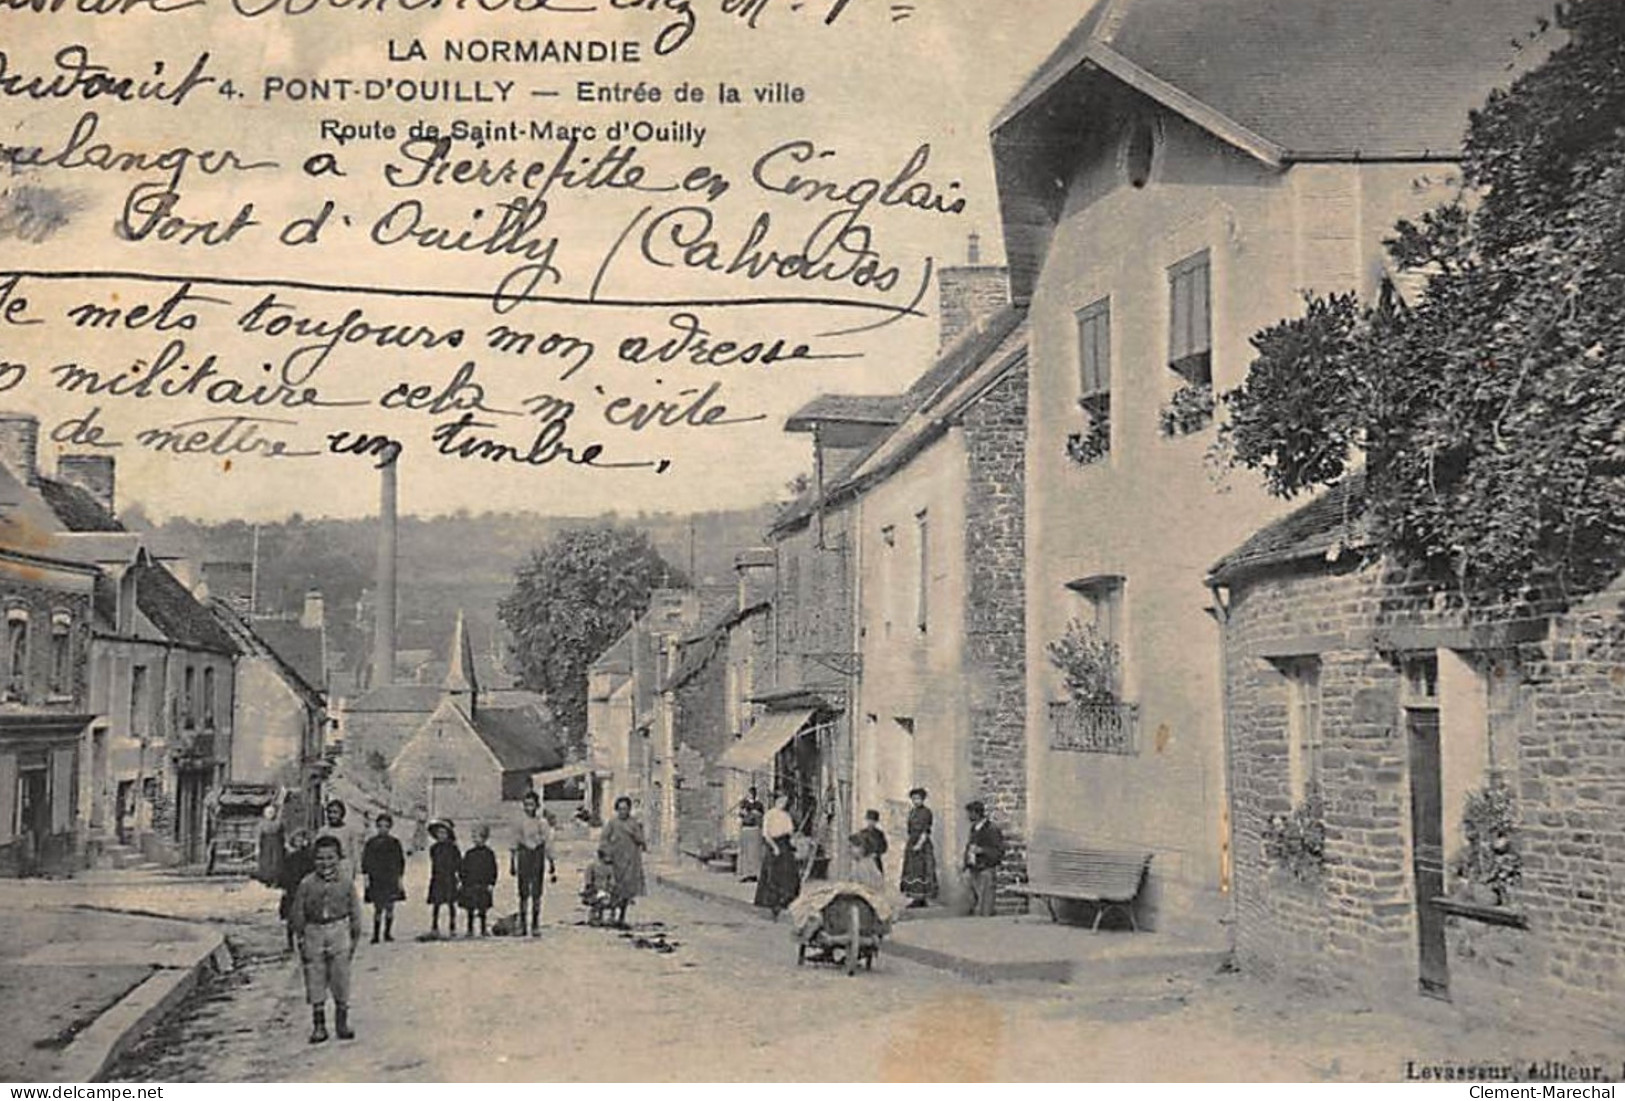 chez M. P=
LA NORMANDIE
4. PONT-D'OUILLY — Entrée de la ville
Route de Saint-Marc d'Ouilly
à Pierrefitte en Cinglais
Pont d'Ouilly (Calvados)
Je mets toujours mon adresse
militaire cela m'évite
de mettre un timbre.
Levasseur, éditeur,
Clement-Marechal